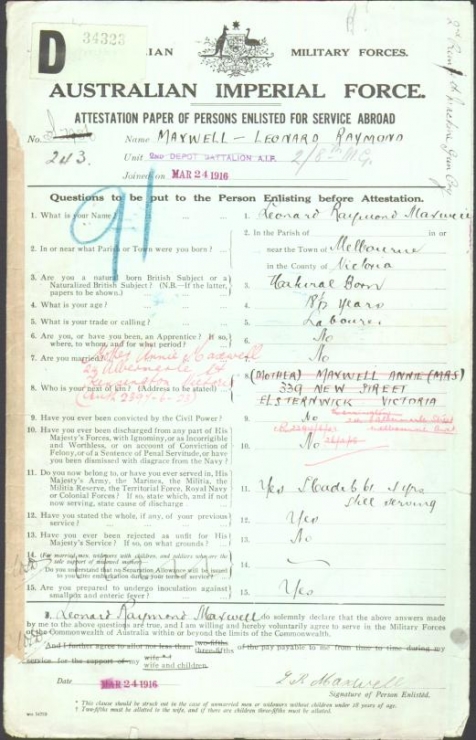 D
34323
MILITARY FORCES.
AUSTRALIAN IMPERIAL FORCE.
ATTESTATION PAPER OF PERSONS ENLISTED FOR SERVICE ABROAD
No. 243. Name MAXWELL - LEONARD RAYMOND
Unit 2ND DEPOT BATTALION A.I.F.
Joined on MAR 24 1916
91
Questions to be put to the Person Enlisting before Attestation.
1. What is your Name? 1. Leonard Raymond Maxwell
2. In or near what Parish or Town were you born? 2. In the Parish of in or
near the Town of Melbourne
in the County of Victoria
3. Are you a natural born British Subject or a
Naturalized British Subject? (N.B.—If the latter,
papers to be shown.) 3. Natural Born
4. What is your age? 4. years
5. What is your trade or calling? 5. Labourer
6. Are you, or have you been, an Apprentice? If so,
where, to whom, and for what period? 6. No
7. Are you married? 7. No
8. Who is your next of kin? (Address to be stated) 8. (MOTHER) MAXWELL ANNIE (MRS)
339 NEW STREET
ELSTERNWICK VICTORIA
Annie Maxwell
9. Have you ever been convicted by the Civil Power? 9. No
10. Have you ever been discharged from any part of His
Majesty's Forces, with Ignominy, or as Incorrigible
and Worthless, or on account of Conviction of
Felony, or of a Sentence of Penal Servitude, or have
you been dismissed with disgrace from the Navy? 10. No
11. Do you now belong to, or have you ever served in, His
Majesty's Army, the Marines, the Militia, the
Militia Reserve, the Territorial Force, Royal Navy
or Colonial Forces? If so, state which, and if not
now serving, state cause of discharge 11. Yes
still serving
12. Have you stated the whole, if any, of your previous
service? 12. Yes
13. Have you ever been rejected as unfit for His
Majesty's Service? If so, on what grounds? 13. No
14. (For married men, widowers with children, and soldiers who are the
sole support of widowed mother)
Do you understand that no Separation Allowance will be issued
to you after embarkation during your term of service? 14.
15. Are you prepared to undergo inoculation against
smallpox and enteric fever? 15. Yes
I, Leonard Raymond Maxwell do solemnly declare that the above answers made
by me to the above questions are true, and I am willing and hereby voluntarily agree to serve in the Military Forces
of the Commonwealth of Australia within or beyond the limits of the Commonwealth.
And I further agree to allot not less than two-fifths three-fifths of the pay payable to me from time to time during my
service for the support of my wife wife and children.
Date MAR 24 1916
L R Maxwell
Signature of Person Enlisted.
* This clause should be struck out in the case of unmarried men or widowers without children under 18 years of age.
† Two-fifths must be allotted to the wife, and if there are children three-fifths must be allotted.